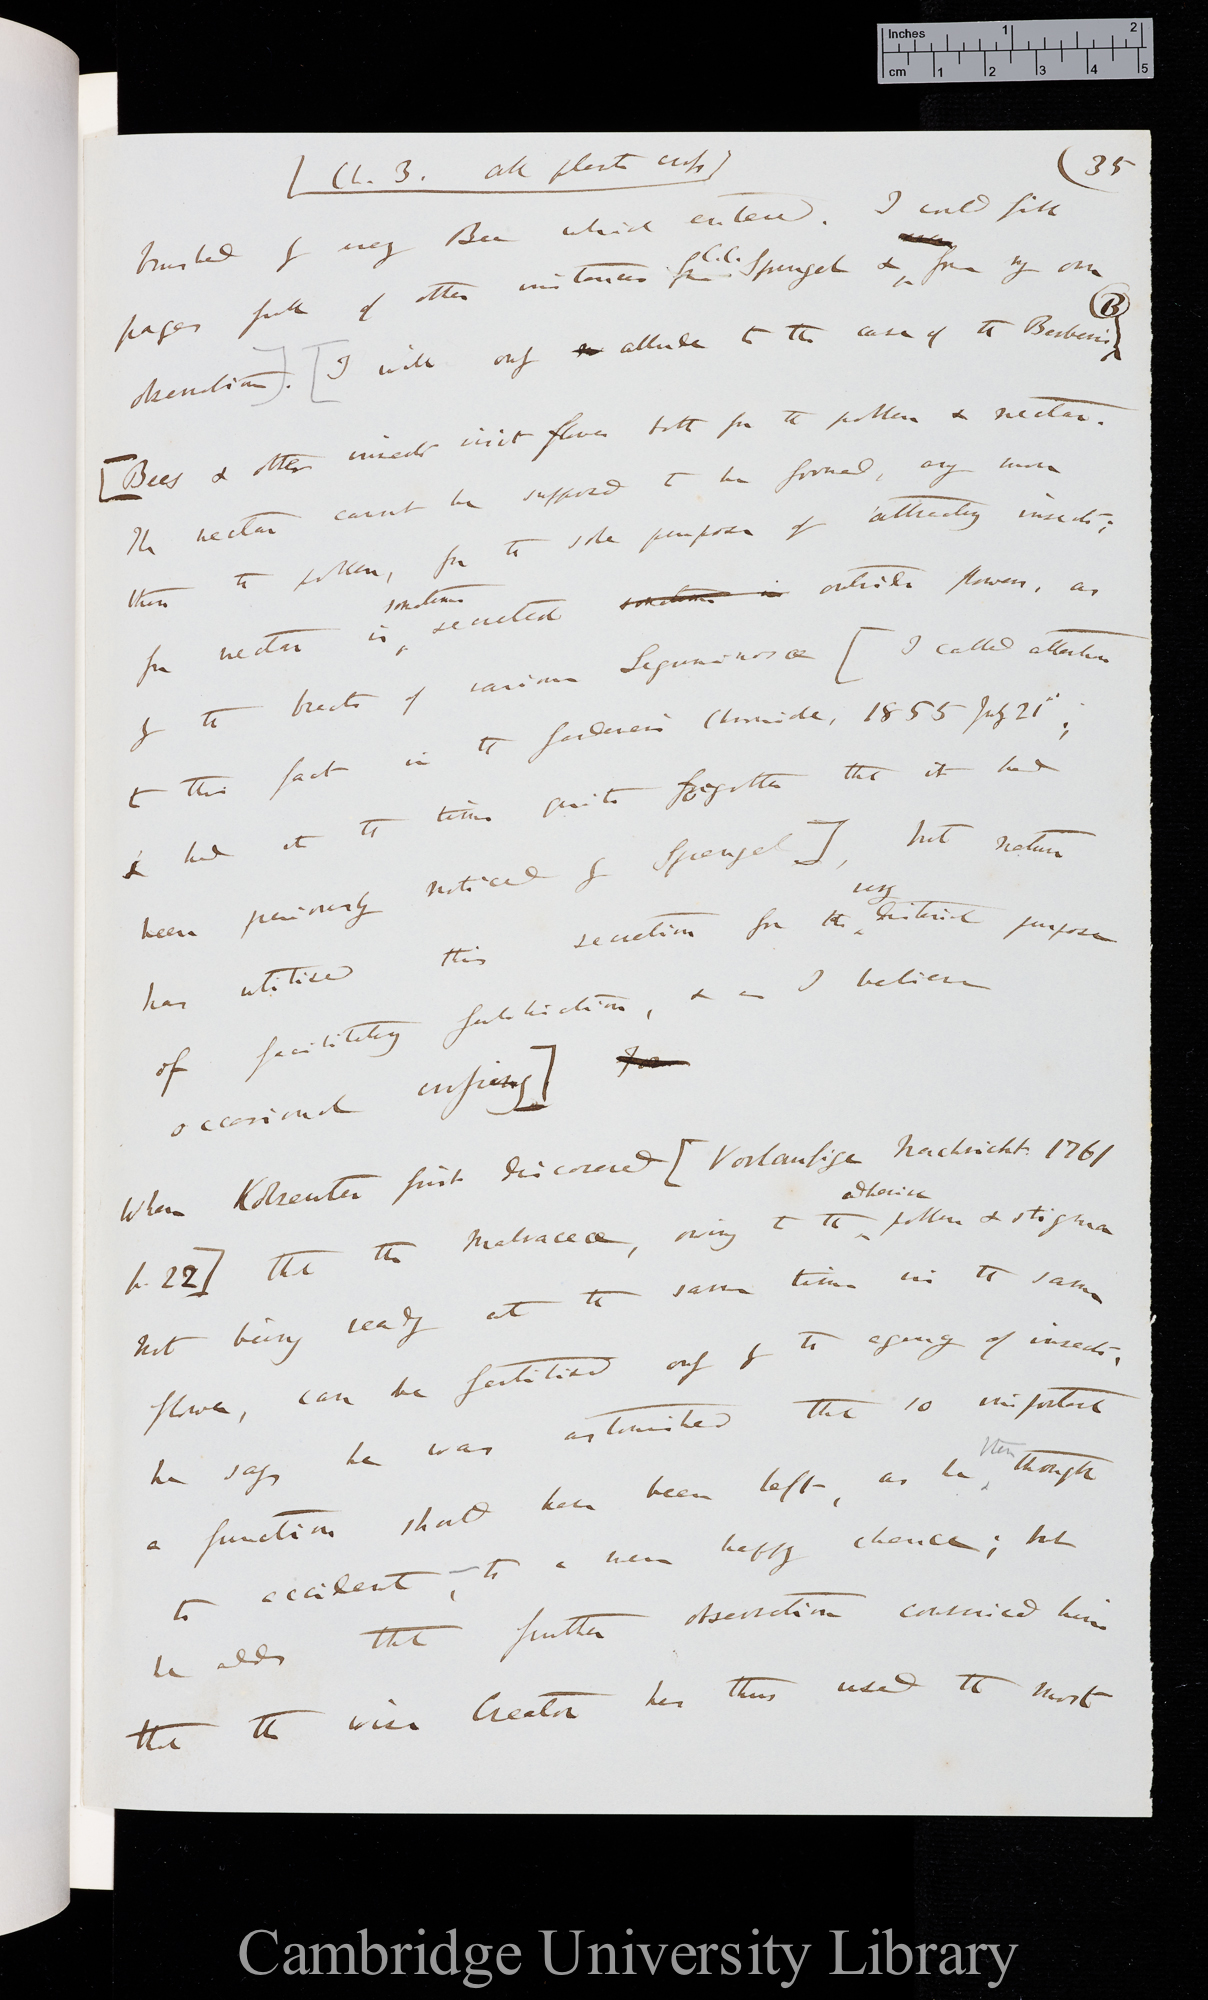 Inches 1 2
cm 1 2 3 4 5
[Ch. 3. all plants cross]
(35
brushed by every Bee which entered. I could fill
pages full of other instances from C.C. Sprengel & from my own
observation]. [I will only allude to the case of the Berberis
(B)
[Bees & other insects visit flowers both for the pollen & nectar.
The nectar cannot be supposed to be formed, any more
than the pollen, for the sole purpose of attracting insects;
for nectar is sometimes secreted sometimes in outside flowers, as
by the bracts of various Leguminosæ [I called attention
to this fact in the Gardeners Chronicle, 1855 July 21st;
& had at the time quite forgotten that it had
been previously noticed by Sprengel], but nature
has utilised this secretion for the very distinct purpose
of facilitating fertilisation, & as I believe
occasional crossing] For
When Kölreuter first discovered [Vorlaufige Nachricht. 1761
p. 22] that the Malvaceæ, owing to the adhesive pollen & stigma
not being ready at the same time in the same
flower, can be fertilised only by the agency of insects,
he says he was astonished that so important
a function should have been left, as he then thought
to accident, to a mere happy chance; but
he adds that further observation convinced him
that the wise Creator has thus used the most
Cambridge University Library